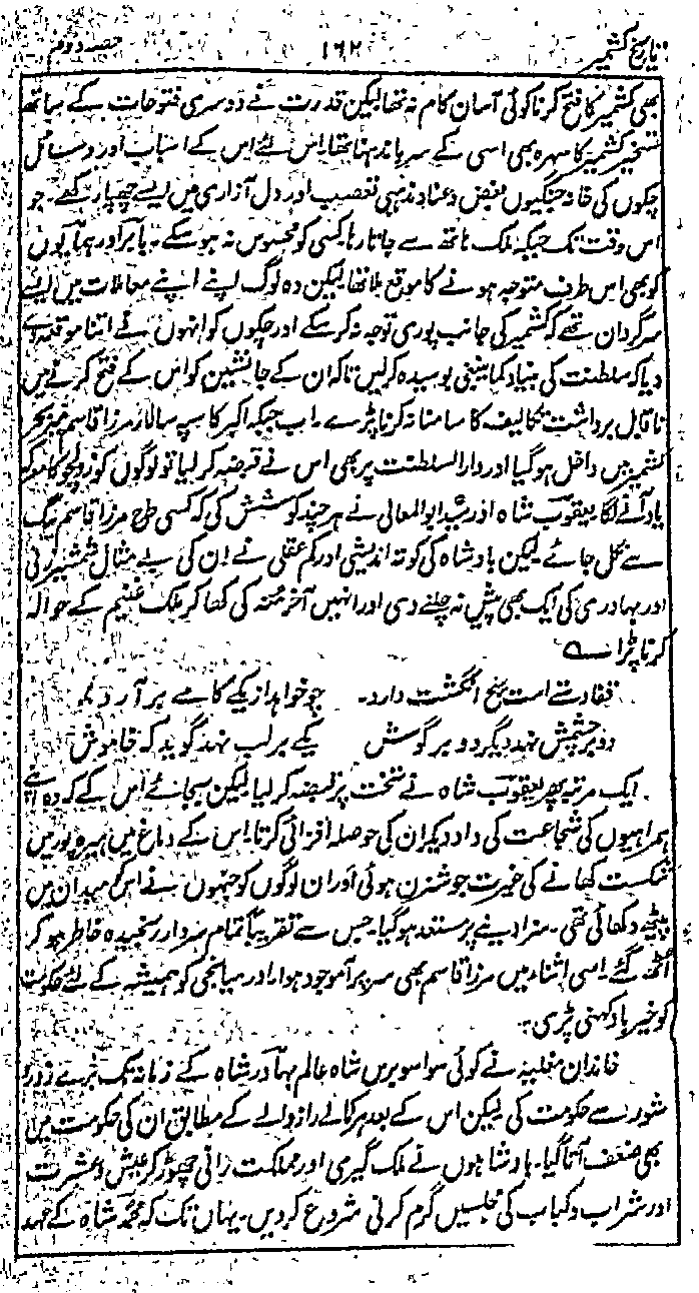 تاریخ کشمیر ۱۶۲ حصہ دوم
بھی کشمیر کا فتح کرنا کوئی آسان کام نہ تھا لیکن قدرت نے دوسری فتوحات کے ساتھ
تسخیر کشمیر کا سہرہ بھی اسی کے سر باندھنا تھا۔ اس لئے اس کے اسباب اور وسائل
چکوں کی خانہ جنگیوں بغض و عناد مذہبی تعصب اور دل آزاری میں ایسے چھپا رکھے۔ جو
اس وقت تک جبکہ ملک ہاتھ سے جاتا رہا کسی کو محسوس نہ ہو سکے۔ بابر اور ہمایوں
کو بھی اس طرف متوجہ ہونے کا موقع ملا تھا لیکن وہ لوگ اپنے اپنے معاملات میں ایسے
سرگردان تھے کہ کشمیر کی جانب پوری توجہ نہ کر سکے اور چکوں کو انہوں نے اتنا موقعہ
دیا کہ سلطنت کی بنیاد کما ینبغی بوسیدہ کر لیں تاکہ ان کے جانشین کو اس کے فتح کرنے میں
ناقابل برداشت تکالیف کا سامنا نہ کرنا پڑے۔ اب جبکہ اکبر کا سپہ سالار مرزا قاسم میر بحر
کشمیر میں داخل ہو گیا اور دارالسلطنت پر بھی اس نے قبضہ کر لیا تو لوگوں کو زولچو کا معرکہ
یاد آنے لگا یعقوب شاہ اور سید ابوالمعالی نے ہر چند کوشش کی کہ کسی طرح مرزا قاسم
سے نکل جائے لیکن بادشاہ کی کوتہ اندیشی اور کم عقلی نے ان کی بے مثال شمشیر زنی
اور بہادری کی ایک بھی پیش نہ چلنے دی اور انہیں آخر منہ کی کھا کر ملک غنیم کے حوالہ
کرنا پڑا ؎
قضا دستے است پنج انگشت دارد۔ چو خواہد از یکے کامے برآرد
دو بر چشمش نہد دیگر دو بر گوش یکے بر لب نہد گوید کہ خاموش
ایک مرتبہ پھر یعقوب شاہ نے تخت پر قبضہ کر لیا لیکن بجائے اس کے کہ وہ اپنے
ہمراہیوں کی شجاعت کی داد دیکر ان کی حوصلہ افزائی کرتا۔ اس کے دماغ میں ہیرہ پور میں
شکست کھانے کی غیرت جوشزن ہوئی اور ان لوگوں کو جنہوں نے اس میدان میں
پیٹھ دکھائی تھی۔ سزا دینے پر مستعد ہو گیا۔ جس سے تقریباً تمام سردار رنجیدہ خاطر ہو کر
اٹھ گئے۔ اسی اثناء میں مرزا قاسم بھی سر پر آموجود ہوا۔ اور میانجی کو ہمیشہ کے لئے حکومت
کو خیر باد کہنی پڑی۔
خاندان مغلیہ نے کوئی سوا سو برس شاہ عالم بہادر شاہ کے زمانہ تک بڑے زور
شور سے حکومت کی لیکن اس کے بعد ہر کمالے را زوالے کے مطابق ان کی حکومت میں
بھی ضعف آتا گیا۔ بادشاہوں نے ملک گیری اور مملکت رانی چھوڑ کر عیش و عشرت
اور شراب و کباب کی مجلسیں گرم کرنی شروع کر دیں۔ یہاں تک کہ محمد شاہ کے عہد